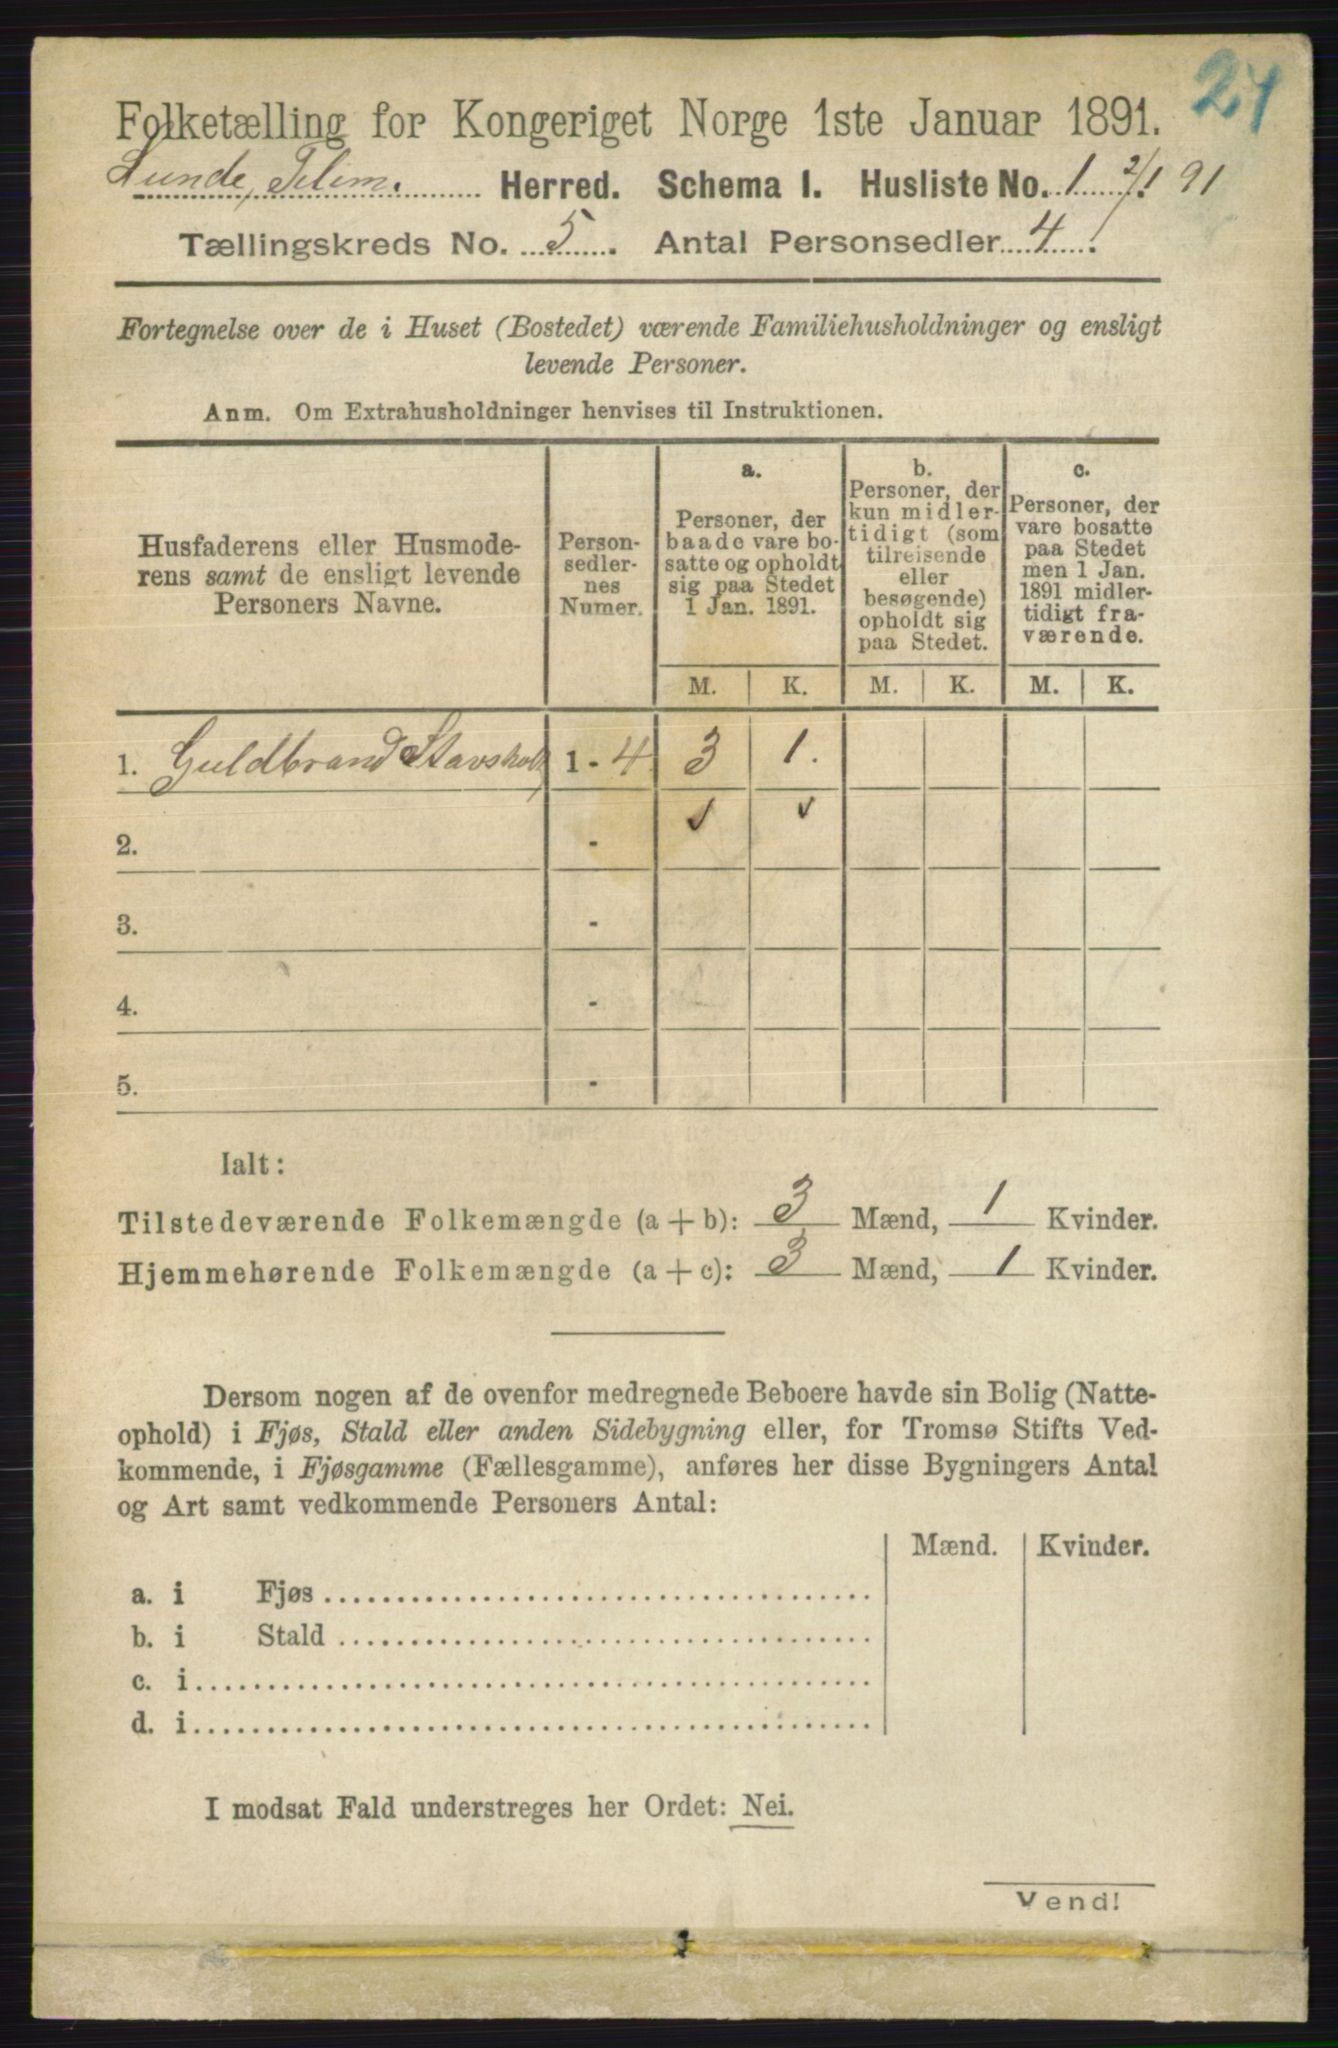 24
Folketælling for Kongeriget Norge 1ste Januar 1891.
Lunde, Telem. Herred. Schema I. Husliste No. 1 2/1 91
Tællingskreds No. 5. Antal Personsedler 4.
Fortegnelse over de i Huset (Bostedet) værende Familiehusholdninger og ensligt
levende Personer.
Anm. Om Extrahusholdninger henvises til Instruktionen.
Husfaderens eller Husmode-
rens samt de ensligt levende
Personers Navne.
Person-
sedler-
nes
Numer.
a.
Personer, der
baade vare bo-
satte og opholdt
sig paa Stedet
1 Jan. 1891.
b.
Personer, der
kun midler-
tidigt (som
tilreisende
eller
besøgende)
opholdt sig
paa Stedet.
c.
Personer, der
vare bosatte
paa Stedet
men 1 Jan.
1891 midler-
tidigt fra-
værende.
M. K. M. K. M. K.
1. Guldbrand Stavsholt 1 - 4 3 1.
2. -
3. -
4. -
5. -
Ialt:
Tilstedeværende Folkemængde (a + b): 3 Mænd, 1 Kvinder.
Hjemmehørende Folkemængde (a + c): 3 Mænd, 1 Kvinder.
Dersom nogen af de ovenfor medregnede Beboere havde sin Bolig (Natte-
ophold) i Fjøs, Stald eller anden Sidebygning eller, for Tromsø Stifts Ved-
kommende, i Fjøsgamme (Fællesgamme), anføres her disse Bygningers Antal
og Art samt vedkommende Personers Antal:
Mænd. Kvinder.
a. i Fjøs
b. i Stald
c. i
d. i
I modsat Fald understreges her Ordet: Nei.
Vend!